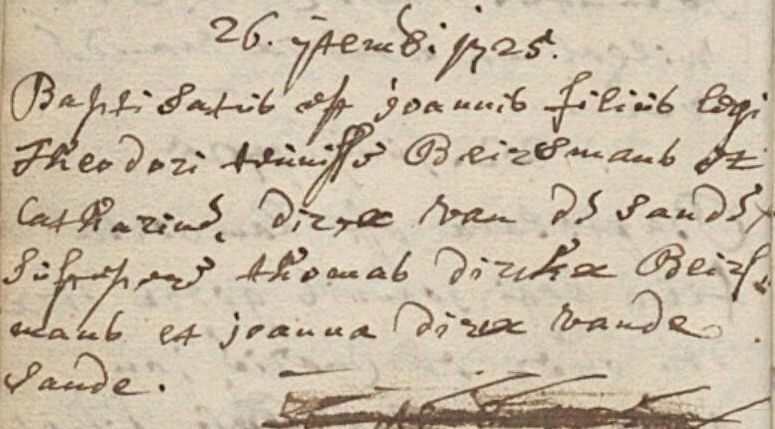 26. 7temb. 1725.
Baptisatus est joannis filius legi
Theodori teunisse Beirsmans et
Catharinæ dircx van de sande
susceperē thomas dirckx Beirs
mans et joanna dircx vande
sande.